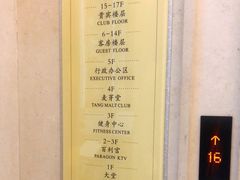 15-17F
贵宾楼层
CLUB FLOOR
6-14F
客房楼层
GUEST FLOOR
5F
行政办公区
EXECUTIVE OFFICE
4F
麦芽堂
TANG MALT CLUB
3F
健身中心
FITNESS CENTER
2-3F
百利宫
PARAGON KTV
1F
大堂
16